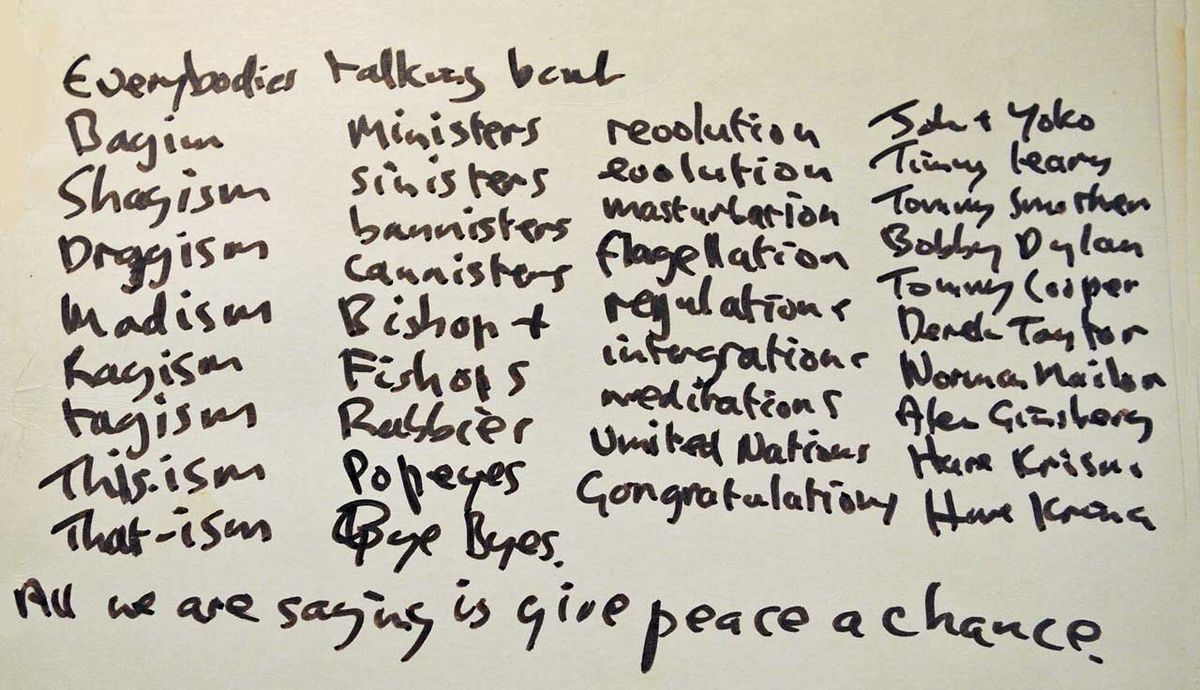 Everybodies talking bout
Bagism
Shagism
Draggism
Madism
Ragism
tagism
This-ism
That-ism
Ministers
sinisters
bannisters
cannisters
Bishop +
Fishops
Rabbies
Popeyes
Bye Byes.
revolution
evolution
masturbation
flagellation
regulations
intergrations
meditations
United Nations
Congratulations
John + Yoko
Timmy Leary
Tommy Smothers
Bobby Dylan
Tommy Cooper
Derek Taylor
Norman Mailer
Alen Ginsberg
Hare Krisna
Hare Krisna
All we are saying is give peace a chance.